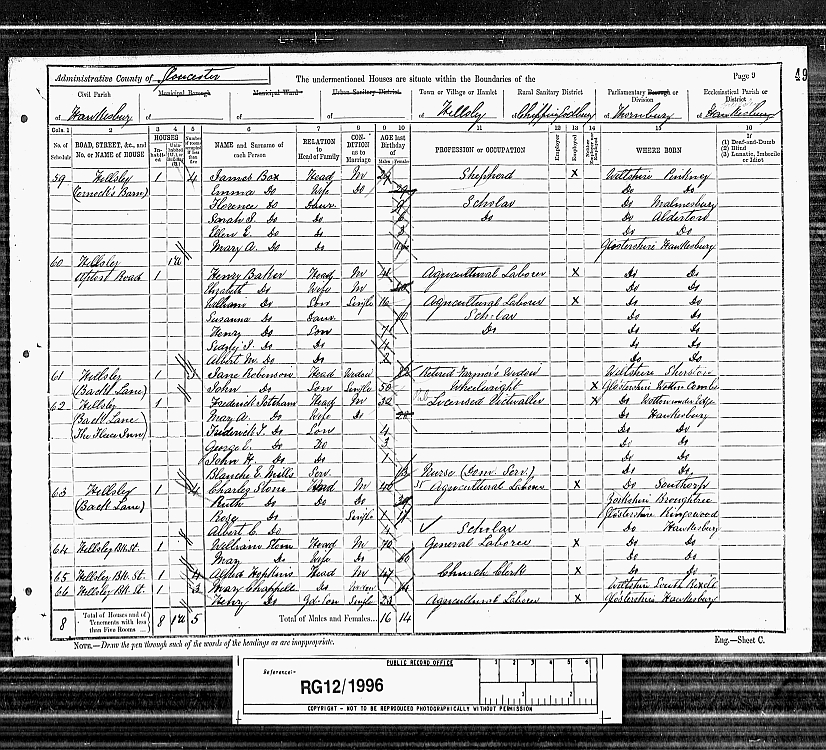 Administrative County of Gloucester
The undermentioned Houses are situate within the Boundaries of the
Page 9
49
Civil Parish
of Hawkesbury
Municipal Borough
of
Municipal Ward
of
Urban Sanitary District
of
Town or Village or Hamlet
of Hillsley
Rural Sanitary District
of Chipping Sodbury
Parliamentary Borough or Division
of Thornbury
Ecclesiastical Parish or District
of Hawkesbury
Cols. 1 2 3 4 5 6 7 8 9 10 11 12 13 14 15 16
No. of Schedule
ROAD, STREET, &c., and No. or NAME of HOUSE
HOUSES
NAME and Surname of each Person
RELATION to Head of Family
CONDITION as to Marriage
AGE last Birthday of
Males Females
PROFESSION or OCCUPATION
Employer
Employed
WHERE BORN
If (1) Deaf-and-Dumb (2) Blind (3) Lunatic, Imbecile or Idiot
59 Hillsley 1 4 James Box Head M 29 Shepherd X Wiltshire
Emma Do Wife Do Do Do
Florence Do Daur 9 Scholar Do Malmesbury
Sarah Do Do 6 Do Do Alderton
Ellen E. Do Do 3 Do Do
Mary A. Do Do Hawkesbury
60 Hillsley
1 Henry Baker Head M Agricultural Laborer X Do Do
Elizabeth Do Wife M Do Do
William Do Son Single 16 Agricultural Laborer X Do Do
Susanna Do Daur 10 Scholar Do Do
Henry Do Son 7 Do Do Do
Sidney Do Do 4 Do Do
Albert M. Do Do 2 Do Do
61 Hillsley 1 Jane Robinson Head Widow Retired Farmer's Widow Wiltshire Sherston
(Back Lane) John Do Son Single 50 Wheelwright X
62 Hillsley 1 Frederick Head M 32 Licensed Victualler X Do Wotton under Edge
(Back Lane Mary A. Do Wife Do 28 Do Hawkesbury
The Fleece Inn) Frederick Do Son 4 Do Do
George E. Do Do 3 Do Do
John H. Do Do 1 Do Do
Blanche E. Mills Serv 13 Nurse (Dom. Serv.) Do Do
63 Hillsley 1 4 Charles Stone Head M 40 Agricultural Laborer X Do
(Back Lane) Ruth Do Do Do 39
Rose Do Single 17 Kingswood
Albert C. Do 4 Scholar Do Hawkesbury
64 Hillsley Bk. St. 1 William Stone Head M 70 General Laborer X Do Do
Mary Do Wife Do 60 Do Do
65 Hillsley Bk. St. 1 4 Alfred Hopkins Head M 47 Church Clerk X Do Do
66 Hillsley Bk. St. 1 3 Mary Chappell Do Widow Wiltshire
Henry Do Gd-Son Single 23 Agricultural Laborer X Hawkesbury
8 Total of Houses and of Tenements with less than Five Rooms 8 1 5 Total of Males and Females... 16 14
NOTE.—Draw the pen through such of the words of the headings as are inappropriate.
Eng.—Sheet C.
PUBLIC RECORD OFFICE
Reference:-
RG12/1996
1 2 3 4 5 6
1 2
COPYRIGHT - NOT TO BE REPRODUCED PHOTOGRAPHICALLY WITHOUT PERMISSION